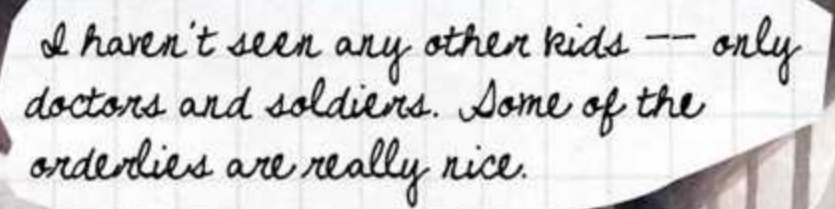 I haven't seen any other kids -- only
doctors and soldiers. Some of the
orderlies are really nice.